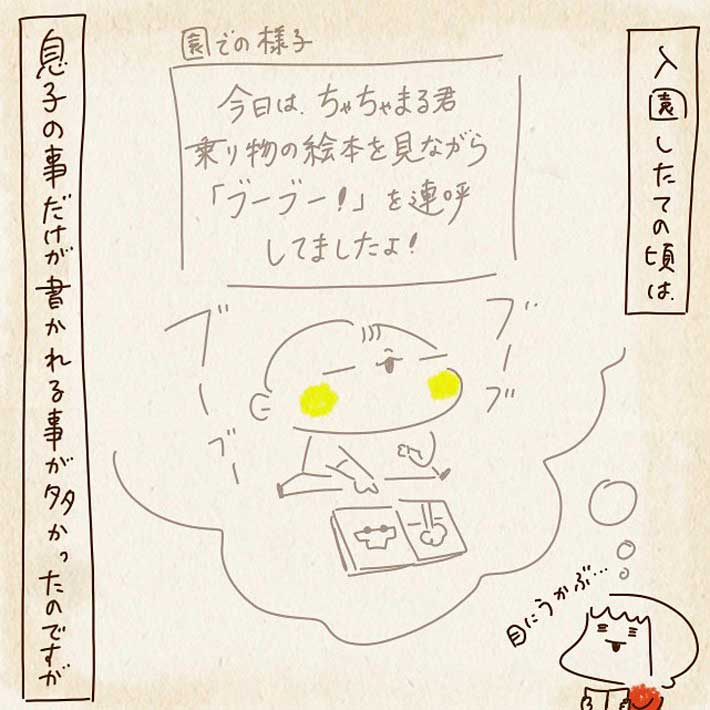 入園したての頃は、
園での様子
今日は、ちゃちゃまる君
乗り物の絵本を見ながら
「ブーブー!」を連呼
してましたよ!
ブーブー
ブーブ
目にうかぶ…
息子の事だけが書かれる事が多かったのですが